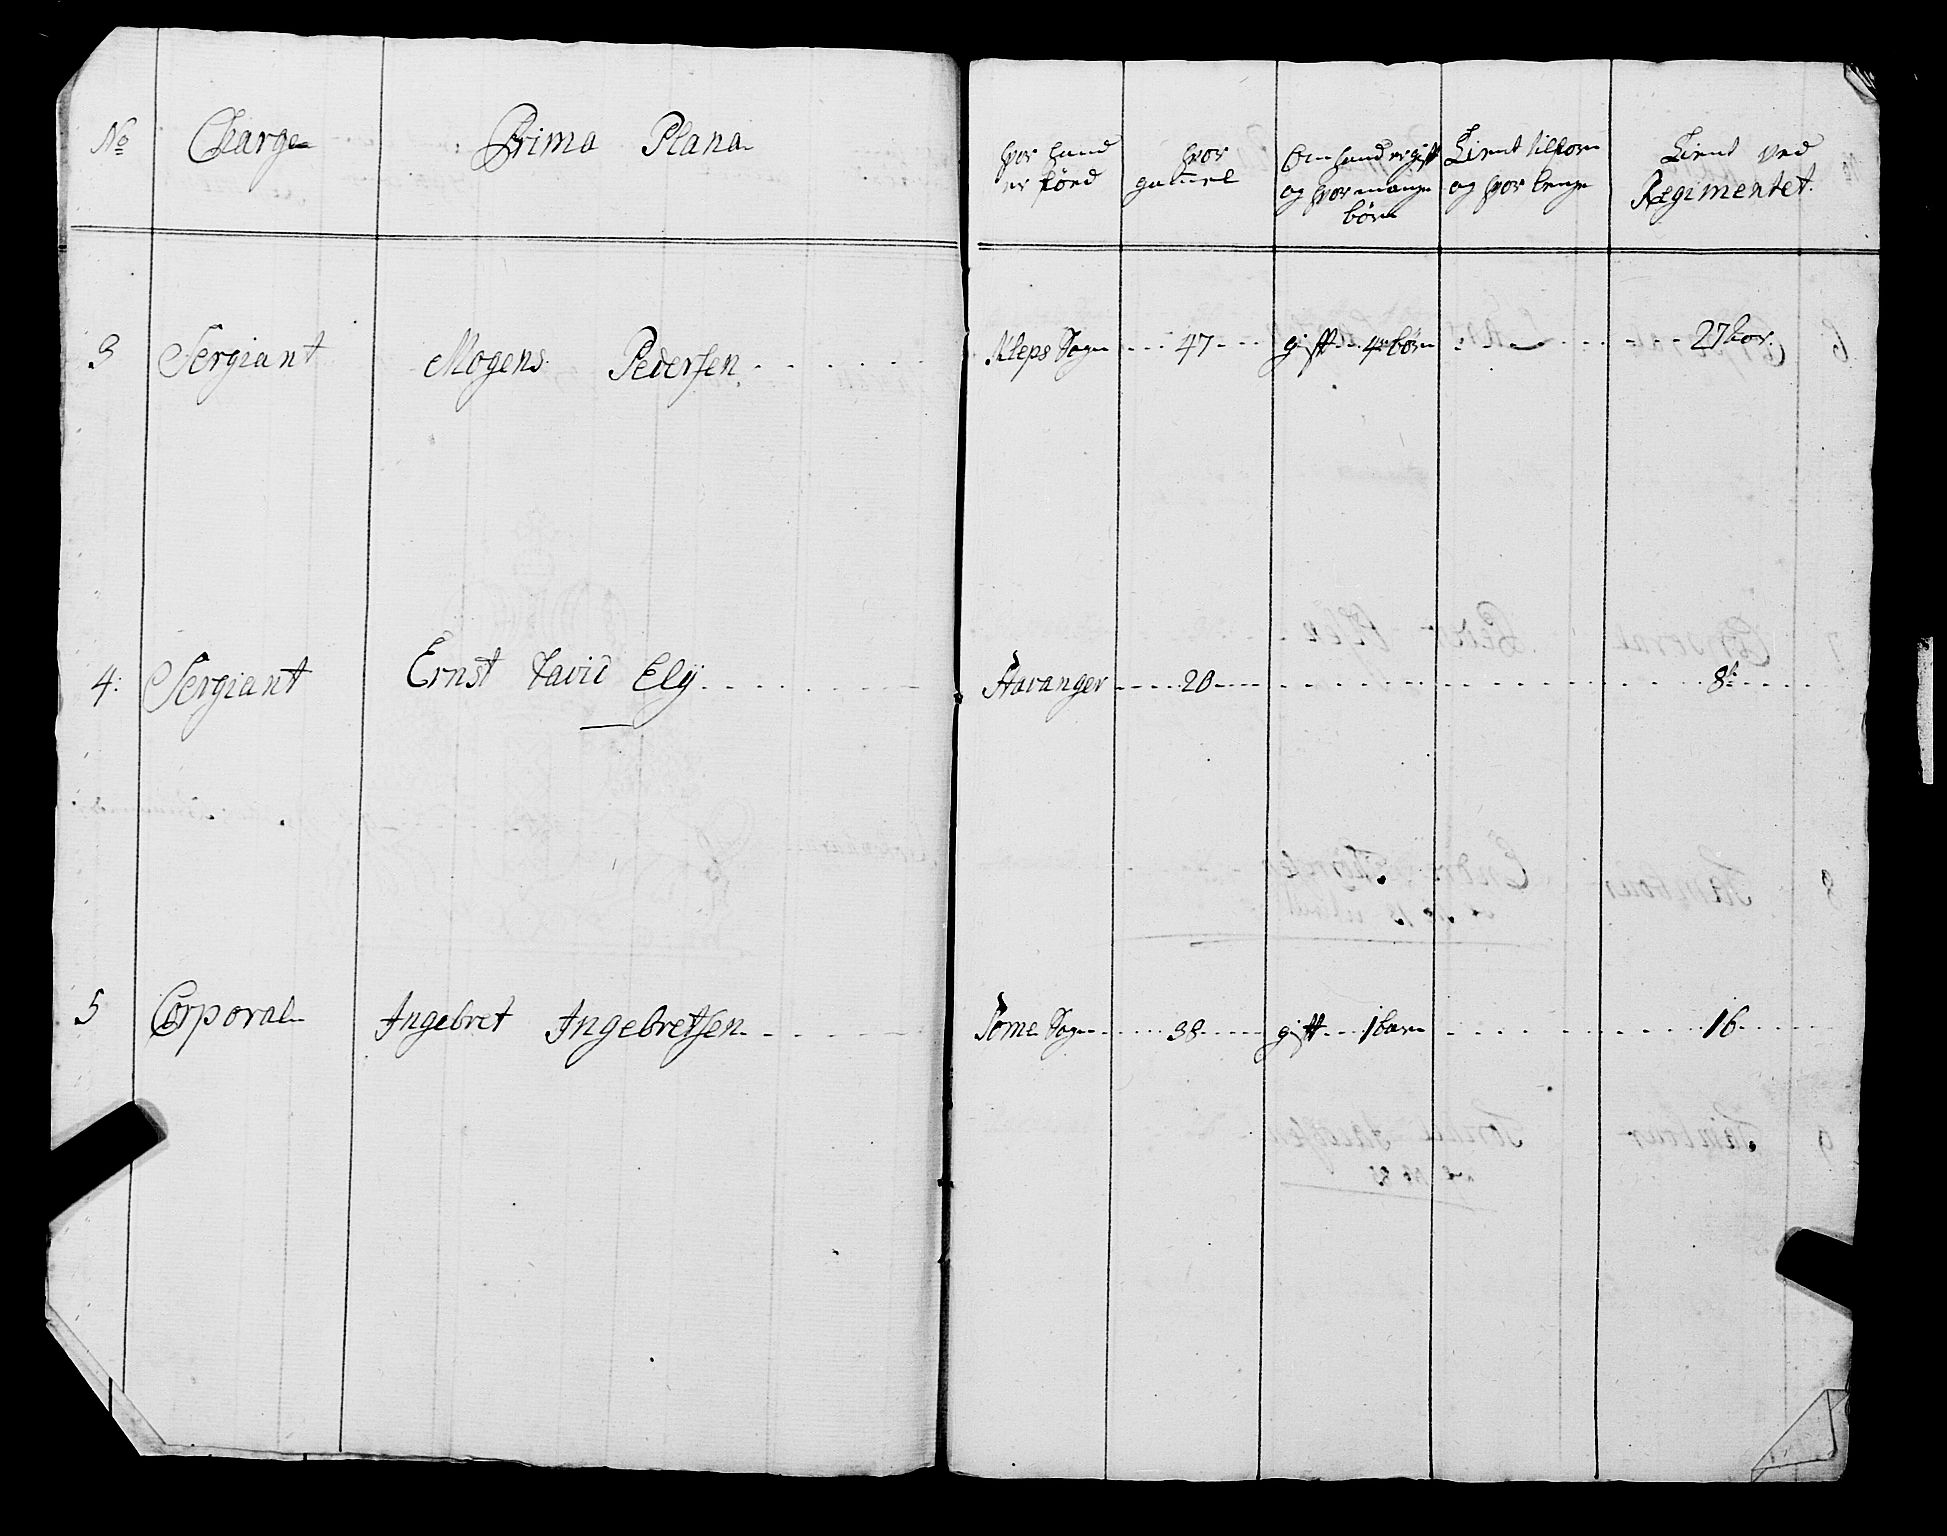 No Charge Prima Plana hvor hand er föed hvor gamel Om hand er gift og hvor mange börn Tient tilforn og hvor lenge Tient ved Regimentet.
3 Sergiant Mogens Pedersen Kleps Sogn 47 gift 4 börn 27 aar.
4: Sergiant Ernst David Ely Stavanger 20 8t
5 Corporal Ingebret Ingebretsen Time Sogn 38 gift 1 barn 16